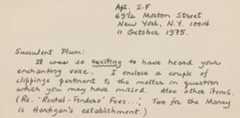 Apt. 2-F
69½ Morton Street
New York, N.Y. 10014
11 October 1975.
Succulent Plum:
It was so exciting to have heard your
enchanting voice. I enclose a couple of
clippings pertinent to the matter in question
which you may have missed. Also other items.
(Re. "Rental-Finders' Fees"..; Two for the Money
is Hartigan's establishment.)